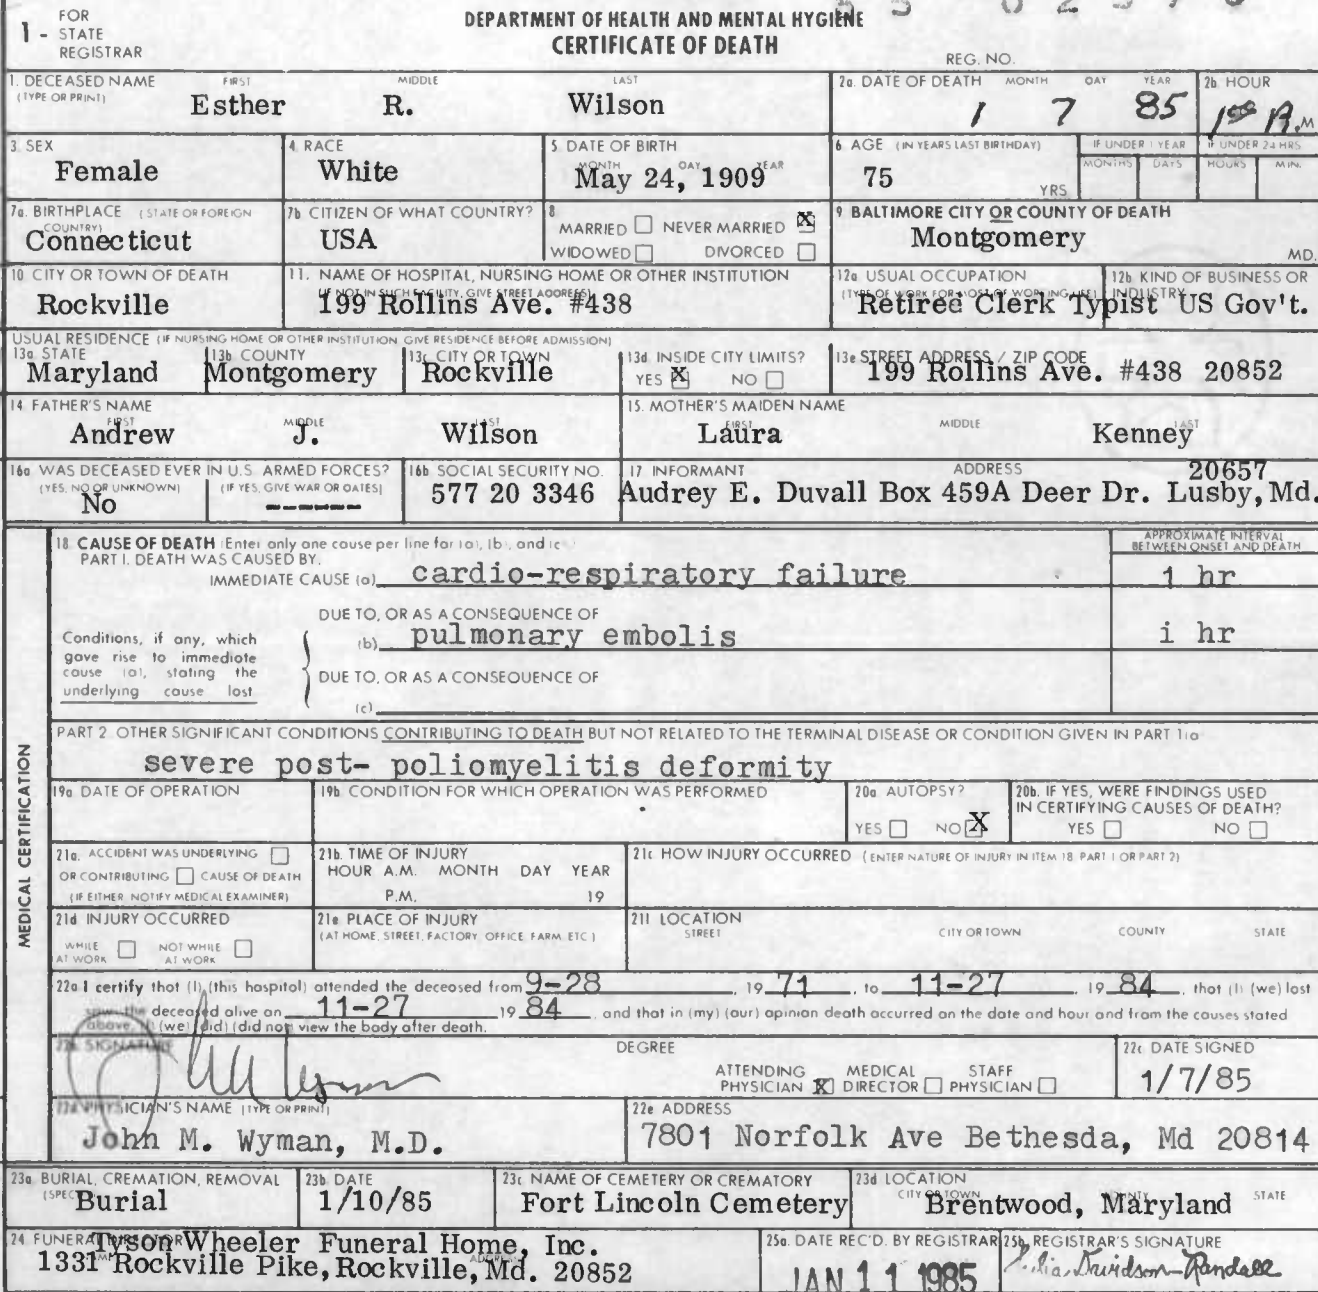 FOR
1 - STATE
REGISTRAR
DEPARTMENT OF HEALTH AND MENTAL HYGIENE
CERTIFICATE OF DEATH
REG. NO.
1. DECEASED NAME FIRST MIDDLE LAST
(TYPE OR PRINT) Esther R. Wilson
2a. DATE OF DEATH MONTH DAY YEAR
1 7 85
2b. HOUR
1 00 A.M
3 SEX
Female
4. RACE
White
5 DATE OF BIRTH
MONTH DAY YEAR
May 24, 1909
6 AGE (IN YEARS LAST BIRTHDAY)
75 YRS
IF UNDER 1 YEAR
MONTHS DAYS
IF UNDER 24 HRS
HOURS MIN.
7a. BIRTHPLACE (STATE OR FOREIGN
COUNTRY)
Connecticut
7b CITIZEN OF WHAT COUNTRY?
USA
8
MARRIED NEVER MARRIED X
WIDOWED DIVORCED
9 BALTIMORE CITY OR COUNTY OF DEATH
Montgomery
MD.
10 CITY OR TOWN OF DEATH
Rockville
11. NAME OF HOSPITAL, NURSING HOME OR OTHER INSTITUTION
(IF NOT IN SUCH FACILITY, GIVE STREET ADDRESS)
199 Rollins Ave. #438
12a USUAL OCCUPATION
(TYPE OF WORK FOR MOST OF WORKING LIFE)
Retired Clerk Typist
12b KIND OF BUSINESS OR
INDUSTRY
US Gov't.
USUAL RESIDENCE (IF NURSING HOME OR OTHER INSTITUTION GIVE RESIDENCE BEFORE ADMISSION)
13a STATE
Maryland
13b COUNTY
Montgomery
13c CITY OR TOWN
Rockville
13d INSIDE CITY LIMITS?
YES X NO
13e STREET ADDRESS / ZIP CODE
199 Rollins Ave. #438 20852
14 FATHER'S NAME
FIRST MIDDLE LAST
Andrew J. Wilson
15. MOTHER'S MAIDEN NAME
FIRST MIDDLE LAST
Laura Kenney
16a WAS DECEASED EVER IN U.S. ARMED FORCES?
(YES, NO OR UNKNOWN) (IF YES, GIVE WAR OR DATES)
No ------
16b SOCIAL SECURITY NO.
577 20 3346
17 INFORMANT ADDRESS 20657
Audrey E. Duvall Box 459A Deer Dr. Lusby, Md.
MEDICAL CERTIFICATION
18 CAUSE OF DEATH (Enter only one cause per line for (a), (b), and (c)
PART I. DEATH WAS CAUSED BY.
APPROXIMATE INTERVAL
BETWEEN ONSET AND DEATH
IMMEDIATE CAUSE (a) cardio-respiratory failure 1 hr
DUE TO, OR AS A CONSEQUENCE OF
(b) pulmonary embolis i hr
Conditions, if any, which
gave rise to immediate
cause (a), stating the
underlying cause last
DUE TO, OR AS A CONSEQUENCE OF
(c)
PART 2 OTHER SIGNIFICANT CONDITIONS CONTRIBUTING TO DEATH BUT NOT RELATED TO THE TERMINAL DISEASE OR CONDITION GIVEN IN PART 1(a
severe post- poliomyelitis deformity
19a DATE OF OPERATION
19b CONDITION FOR WHICH OPERATION WAS PERFORMED
20a AUTOPSY?
YES NO X
20b. IF YES, WERE FINDINGS USED
IN CERTIFYING CAUSES OF DEATH?
YES NO
21a. ACCIDENT WAS UNDERLYING
OR CONTRIBUTING CAUSE OF DEATH
(IF EITHER NOTIFY MEDICAL EXAMINER)
21b. TIME OF INJURY
HOUR A.M. MONTH DAY YEAR
P.M. 19
21c HOW INJURY OCCURRED (ENTER NATURE OF INJURY IN ITEM 18 PART 1 OR PART 2)
21d INJURY OCCURRED
WHILE AT WORK NOT WHILE AT WORK
21e PLACE OF INJURY
(AT HOME, STREET, FACTORY, OFFICE, FARM, ETC)
21f LOCATION
STREET CITY OR TOWN COUNTY STATE
22a I certify that (I) (this hospital) attended the deceased from 9-28, 19 71, to 11-27, 19 84, that (I) (we) last
saw the deceased alive on 11-27 19 84, and that in (my) (our) opinion death occurred on the date and hour and from the causes stated
above, (I) (we) (did) (did not) view the body after death.
22b SIGNATURE
Wyman
DEGREE
ATTENDING PHYSICIAN X MEDICAL DIRECTOR STAFF PHYSICIAN
22c DATE SIGNED
1/7/85
22d PHYSICIAN'S NAME (TYPE OR PRINT)
John M. Wyman, M.D.
22e ADDRESS
7801 Norfolk Ave Bethesda, Md 20814
23a BURIAL, CREMATION, REMOVAL
Burial
23b DATE
1/10/85
23c NAME OF CEMETERY OR CREMATORY
Fort Lincoln Cemetery
23d LOCATION
CITY OR TOWN COUNTY STATE
Brentwood, Maryland
24 FUNERAL DIRECTOR
Tyson Wheeler Funeral Home, Inc.
1331 Rockville Pike, Rockville, Md. 20852
25a. DATE REC'D. BY REGISTRAR
JAN 11 1985
25b. REGISTRAR'S SIGNATURE
Davidson-Randall